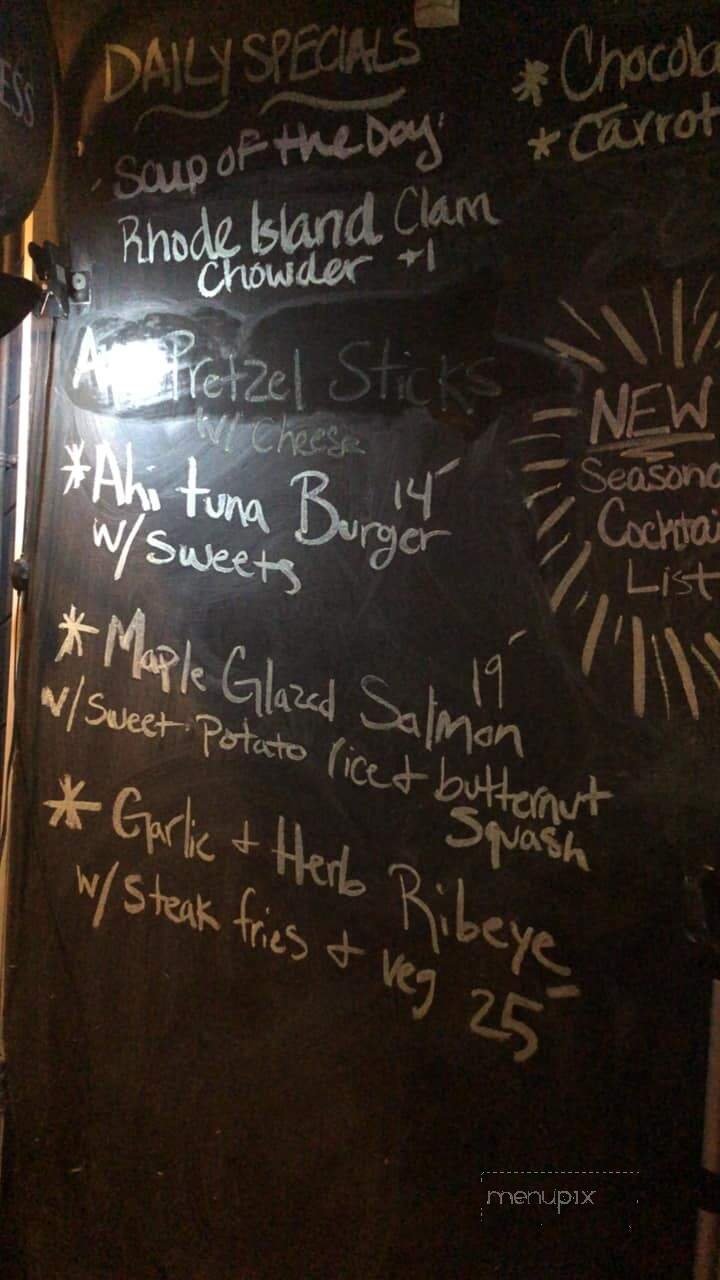 DAILY SPECIALS
Soup of the Day:
Rhode Island Clam
Chowder +1
Pretzel Sticks
w/ Cheese
*Ahi tuna Burger 14
w/ Sweets
*Maple Glazed Salmon 19
w/ Sweet Potato rice + butternut
Squash
*Garlic + Herb Ribeye
w/ Steak fries + veg 25
* Chocola
* Carrot
NEW
Seasona
Cocktai
List
ESS
menupix